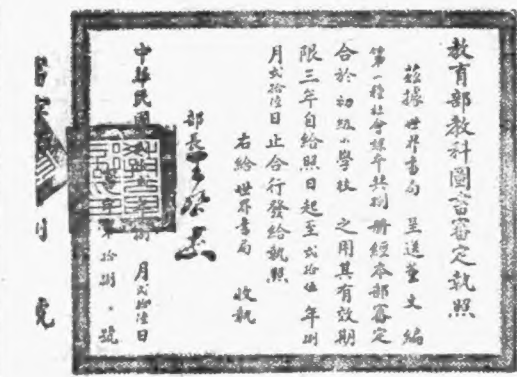 教育部教科圖書審定執照
茲據世界書局呈送董文編
第一種社會課本共捌册經本部審定
合於初級小學校之用其有效期
限三年自給照日起至弍拾伍年捌
月弍拾陸日止合行發給執照
右給世界書局收執
部長王
中華民國 月弍拾陸日
號